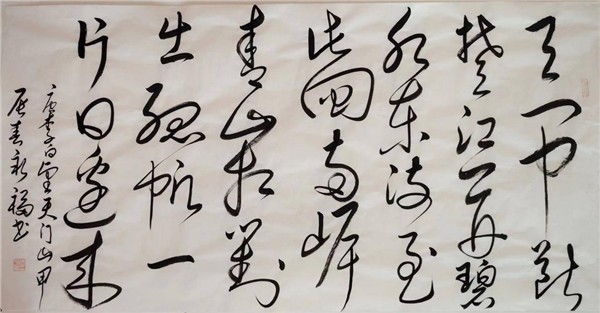 天门中断
楚江开碧
水东流至
此回两岸
青山相对
出孤帆一
片日边来
唐李白望天门山甲
辰春福书